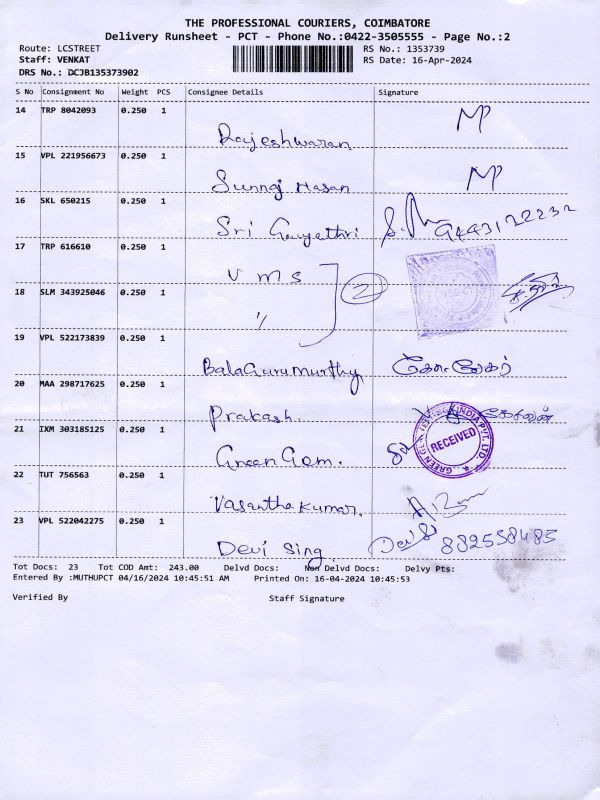 THE PROFESSIONAL COURIERS, COIMBATORE
Delivery Runsheet - PCT - Phone No.:0422-3505555 - Page No.:2
Route: LCSTREET RS No.: 1353739
Staff: VENKAT RS Date: 16-Apr-2024
DRS No.: DCJB135373902
S No Consignment No Weight PCS Consignee Details Signature
14 TRP 8042093 0.250 1
Rajeshwaran MP
15 VPL 221956673 0.250 1
Sunnaj Hasan MP
16 SKL 650215 0.250 1
Sri Gayethri 9443122232
17 TRP 616610 0.250 1
V M S 2
18 SLM 343925046 0.250 1
"
19 VPL 522173839 0.250 1
BalaGuruMurthy
20 MAA 298717625 0.250 1
Prakash.
21 IXM 303185125 0.250 1
Green Gem. RECEIVED INDIA PVT. LTD.
22 TUT 756563 0.250 1
Vasantha Kumar.
23 VPL 522042275 0.250 1
Devi Sing 882558485
Tot Docs: 23 Tot COD Amt: 243.00 Delvd Docs: Non Delvd Docs: Delvy Pts:
Entered By :MUTHUPCT 04/16/2024 10:45:51 AM Printed On: 16-04-2024 10:45:53
Verified By Staff Signature